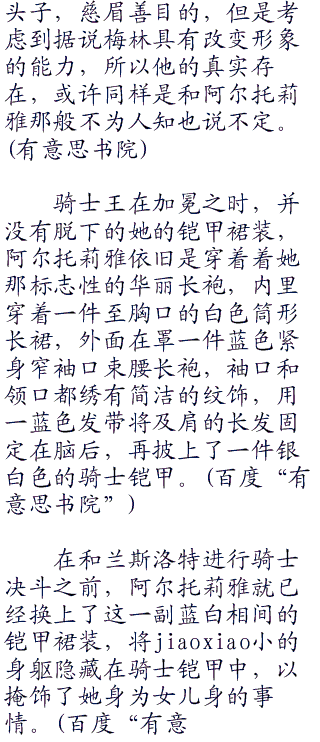 头子，慈眉善目的，但是考
虑到据说梅林具有改变形象
的能力，所以他的真实存
在，或许同样是和阿尔托莉
雅那般不为人知也说不定。
(有意思书院)
骑士王在加冕之时，并
没有脱下的她的铠甲裙装，
阿尔托莉雅依旧是穿着着她
那标志性的华丽长袍，内里
穿着一件至胸口的白色筒形
长裙，外面在罩一件蓝色紧
身窄袖口束腰长袍，袖口和
领口都绣有简洁的纹饰，用
一蓝色发带将及肩的长发固
定在脑后，再披上了一件银
白色的骑士铠甲。(百度“有
意思书院”)
在和兰斯洛特进行骑士
决斗之前，阿尔托莉雅就已
经换上了这一副蓝白相间的
铠甲裙装，将jiaoxiao小的
身躯隐藏在骑士铠甲中，以
掩饰了她身为女儿身的事
情。(百度“有意